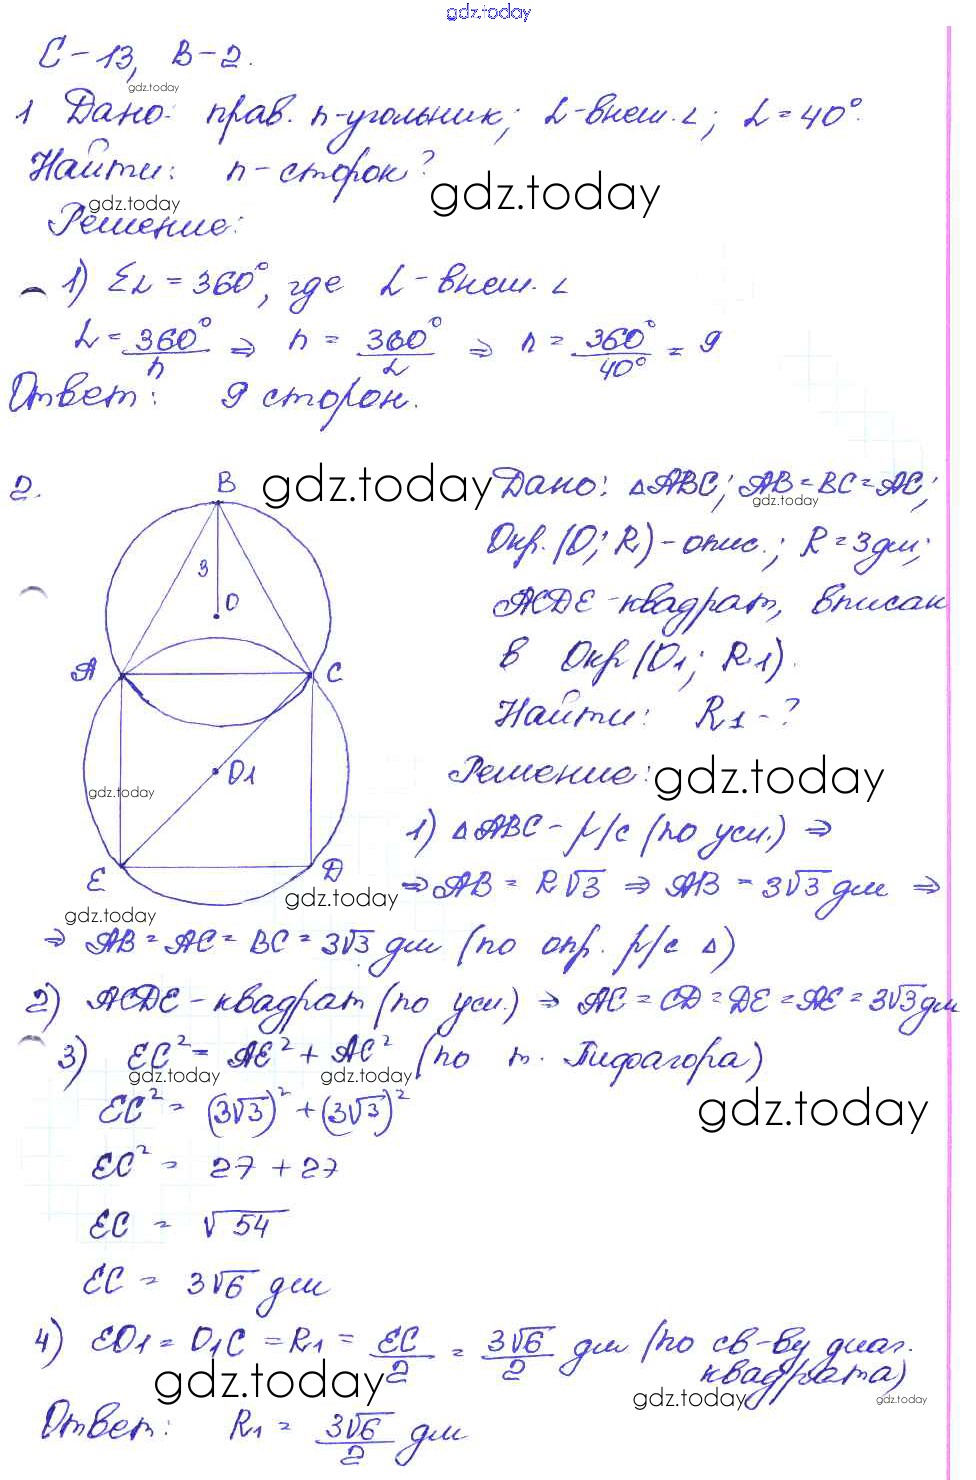 gdz.today
С-13, В-2.
gdz.today
1 Дано: прав. n-угольник; α-внеш.∠; α=40°.
Найти: n-сторон?
gdz.today
gdz.today
Решение:
1) Σα = 360°, где α-внеш. ∠
α = 360°/n ⇒ n = 360°/α ⇒ n = 360°/40° = 9
Ответ: 9 сторон.
2.
B
3
O
A
C
O1
E
D
gdz.today
gdz.today
gdz.today
gdz.today
Дано: △ABC; AB=BC=AC;
gdz.today
Окр.(O; R)-опис.; R=3дм;
ACDE-квадрат, вписан
в Окр(O1; R1).
Найти: R1-?
Решение:
gdz.today
1) △ABC - р/с (по усл.) ⇒
⇒ AB = R√3 ⇒ AB = 3√3 дм ⇒
⇒ AB = AC = BC = 3√3 дм (по опр. р/с △)
2) ACDE-квадрат (по усл.) ⇒ AC = CD = DE = AE = 3√3 дм
3) EC² = AE² + AC² (по т. Пифагора)
gdz.today
gdz.today
gdz.today
EC² = (3√3)² + (3√3)²
EC² = 27 + 27
EC = √54
EC = 3√6 дм
4) EO1 = O1C = R1 = EC/2 = 3√6/2 дм (по св-ву диаг.
квадрата)
gdz.today
gdz.today
gdz.today
Ответ: R1 = 3√6/2 дм